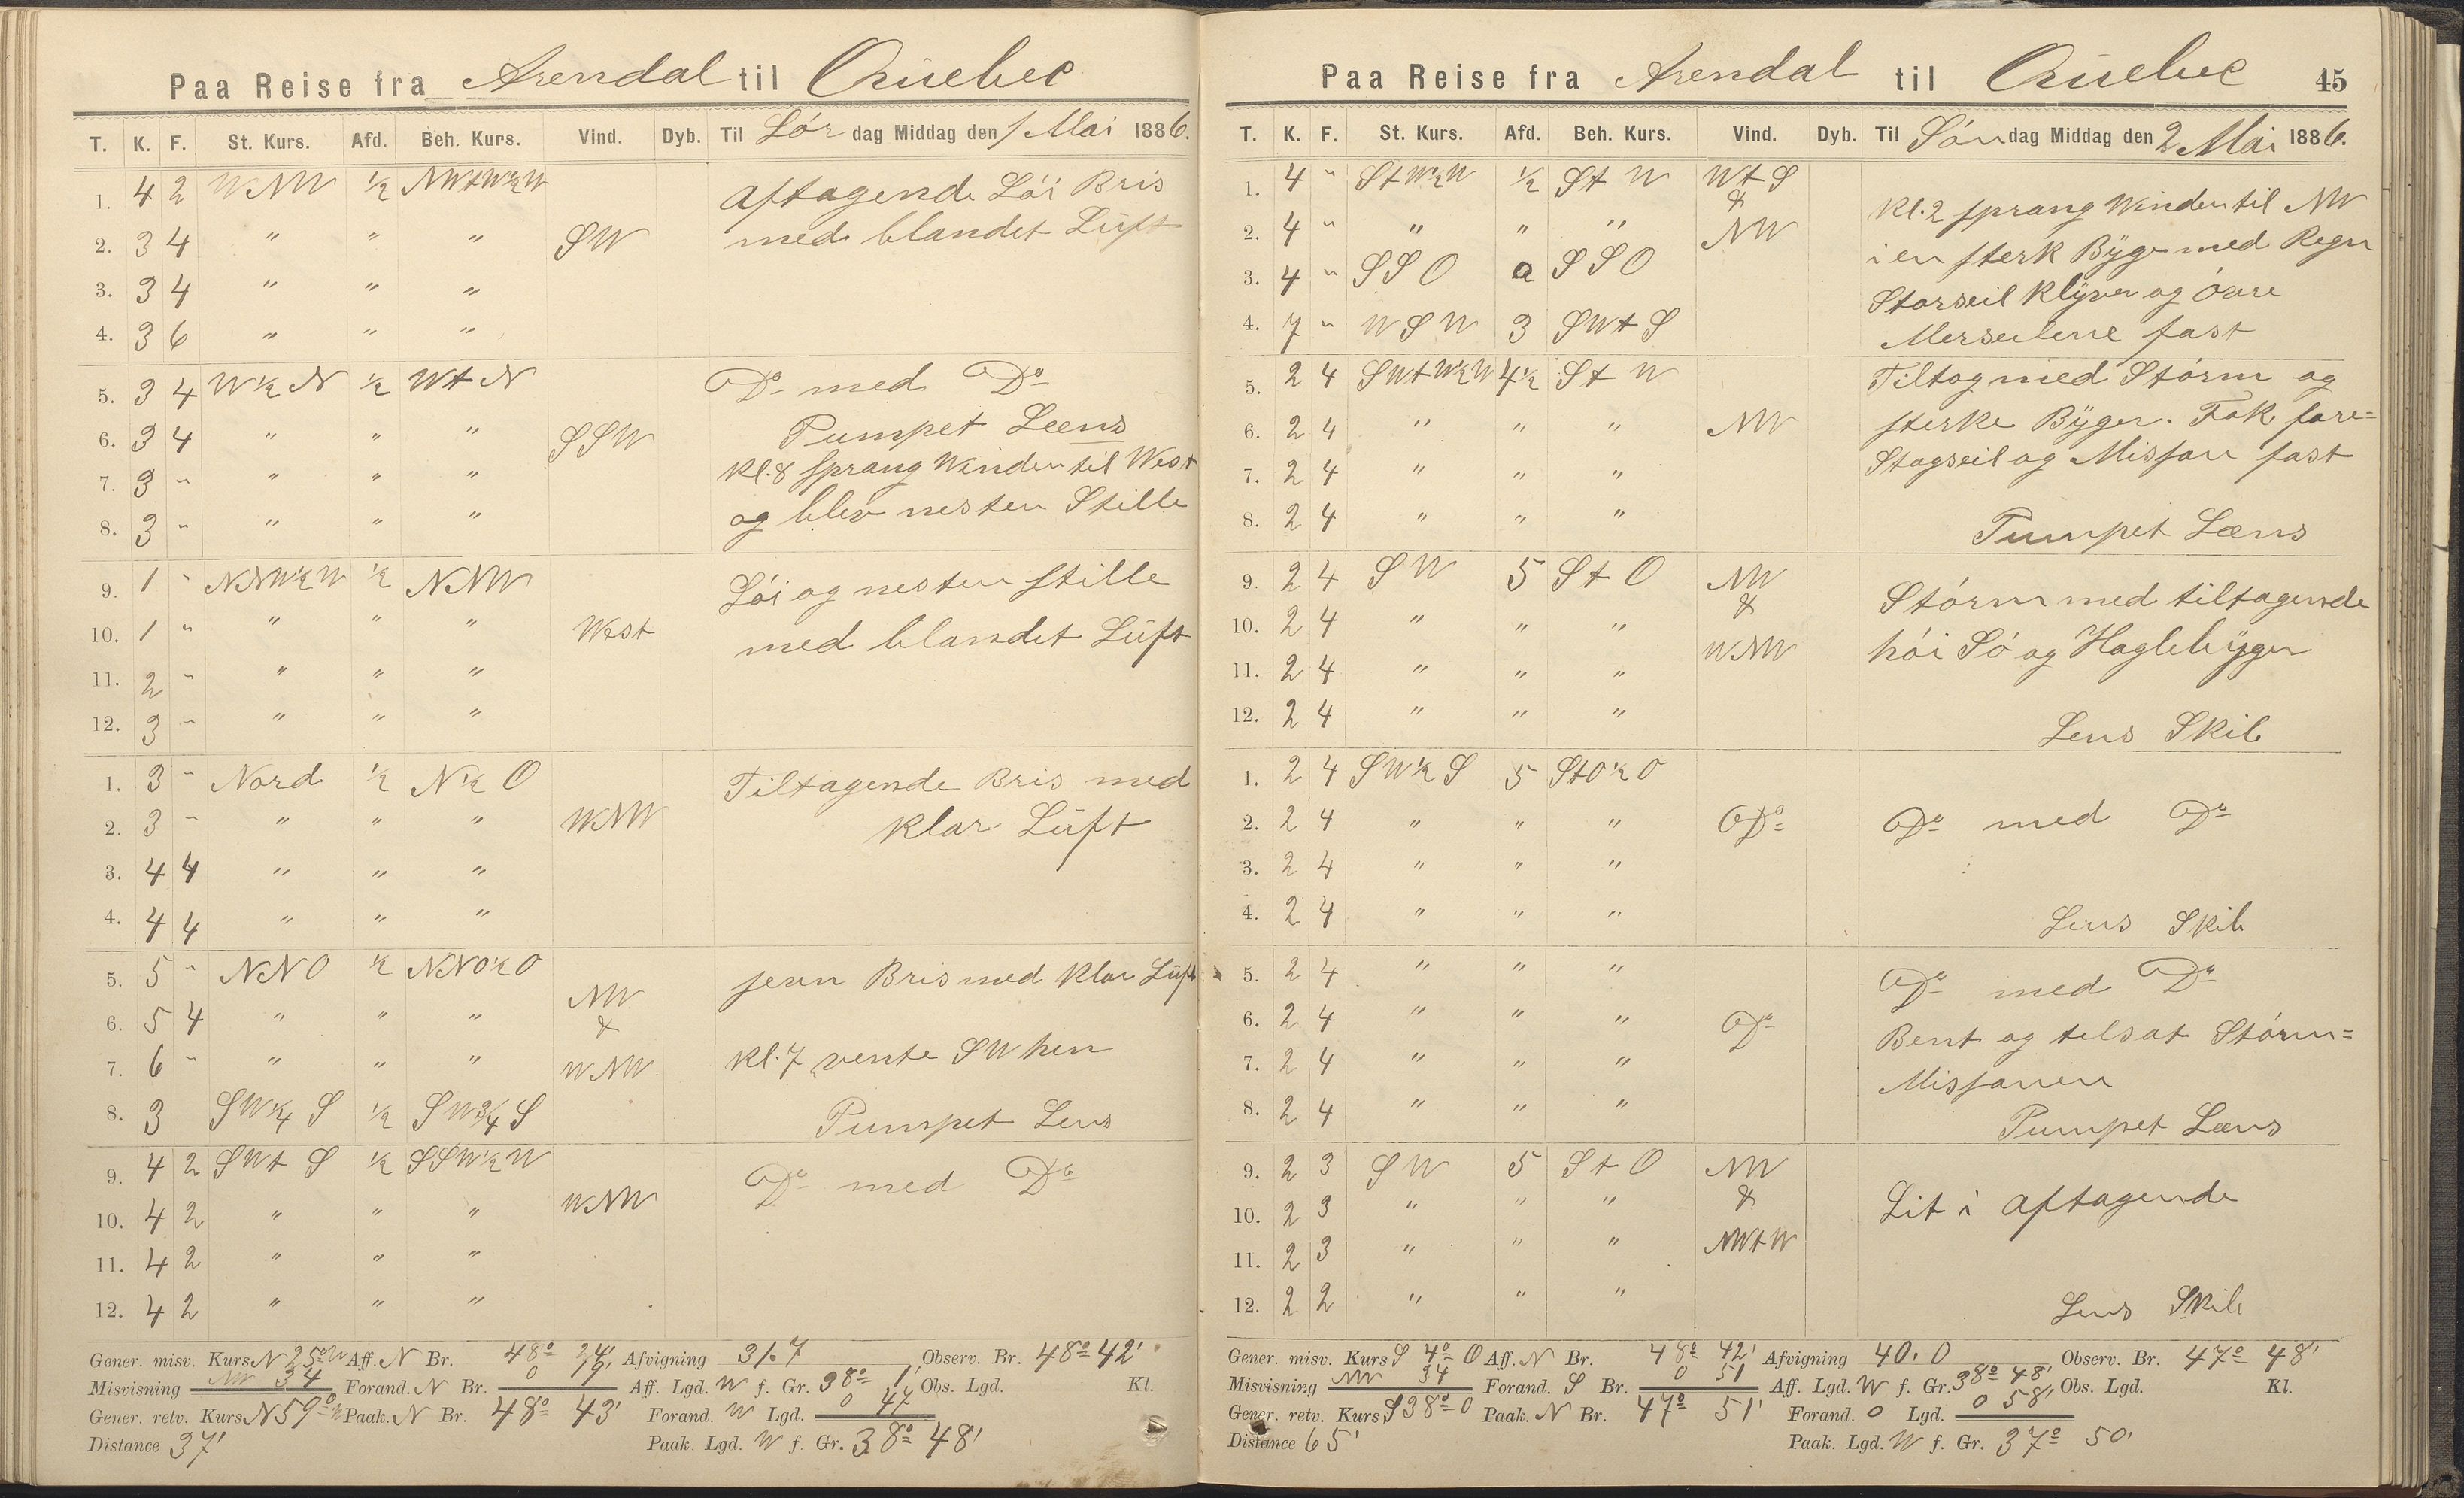 Paa Reise fra Arendal til Quebec
T. K. F. St. Kurs. Afd. Beh. Kurs. Vind. Dyb. Til Lör dag Middag den 1 Mai 1886.
1. 4 2 WNW ½ NWtW½W Aftagende Löi Bris
2. 3 4 " " " SW med blandet Luft
3. 3 4 " " "
4. 3 6 " " "
5. 3 4 W½N ½ WtN Do med Do
6. 3 4 " " " SSW Pumpet Læns
7. 3 " " " " Kl. 8 sprang Vinden til West
8. 3 " " " " og blev nesten Stille
9. 1 " NNW½W ½ NNW Löi og nesten stille
10. 1 " " " " West med blandet Luft
11. 2 " " " "
12. 3 " " " "
1. 3 " Nord ½ N½O Tiltagende Bris med
2. 3 " " " " WNW klar Luft
3. 4 4 " " "
4. 4 4 " " "
5. 5 " NNO ½ NNO½O NW jevn Bris med klar Luft
6. 5 4 " " " &
7. 6 " " " " WNW Kl. 7 vente SW hen
8. 3 SW¼S ½ SW¾S Pumpet Lens
9. 4 2 SWtS ½ SSW½W Do med Do
10. 4 2 " " " WNW
11. 4 2 " " "
12. 4 2 " " "
Gener. misv. Kurs N 25° W Aff. N Br. 48° 24' Afvigning 31.7 Observ. Br. 48° 42'
Misvisning NW 34 Forand. N Br. 0 19' Aff. Lgd. W f. Gr. 38° 1' Obs. Lgd. Kl.
Gener. retv. Kurs N 59° W Paak. N Br. 48° 43' Forand. W Lgd. 0 47
Distance 37' Paak. Lgd. W f. Gr. 38° 48'
Paa Reise fra Arendal til Quebec 45
T. K. F. St. Kurs. Afd. Beh. Kurs. Vind. Dyb. Til Sön dag Middag den 2 Mai 1886.
1. 4 " StW½W ½ StW WtS Kl. 2 sprang Vinden til NW
&
2. 4 " " " " NW i en sterk Byge med Regn
3. 4 " SSO a SSO Storseil Klyver og övre
4. 7 " WSW 3 SWtS Merseilene fast
5. 2 4 SWtW½W 4½ StW Tiltog med Storm og
6. 2 4 " " " NW sterke Byger. Fok fore=
7. 2 4 " " " Stagseil og Missan fast
8. 2 4 " " " Pumpet Læns
9. 2 4 SW 5 StO NW Storm med tiltagende
&
10. 2 4 " " " WNW höi Sö og Haglebyger
11. 2 4 " " "
12. 2 4 " " " Lens Skib
1. 2 4 SW½S 5 StO½O
2. 2 4 " " " Do Do med Do
3. 2 4 " " "
4. 2 4 " " " Lens Skib
5. 2 4 " " " Do med Do
6. 2 4 " " " Do Bent og tilsat Storm=
7. 2 4 " " " Missanen
8. 2 4 " " " Pumpet Læns
9. 2 3 SW 5 StO NW
10. 2 3 " " " & Lit i aftagende
11. 2 3 " " " NWtW
12. 2 2 " " " Lens Skib
Gener. misv. Kurs S 4° O Aff. N Br. 48° 42' Afvigning 40.0 Observ. Br. 47° 48'
Misvisning NW 34 Forand. S Br. 0 51 Aff. Lgd. W f. Gr. 38° 48' Obs. Lgd. Kl.
Gener. retv. Kurs S 38° O Paak. N Br. 47° 51' Forand. O Lgd. 0 58'
Distance 65' Paak. Lgd. W f. Gr. 37° 50'